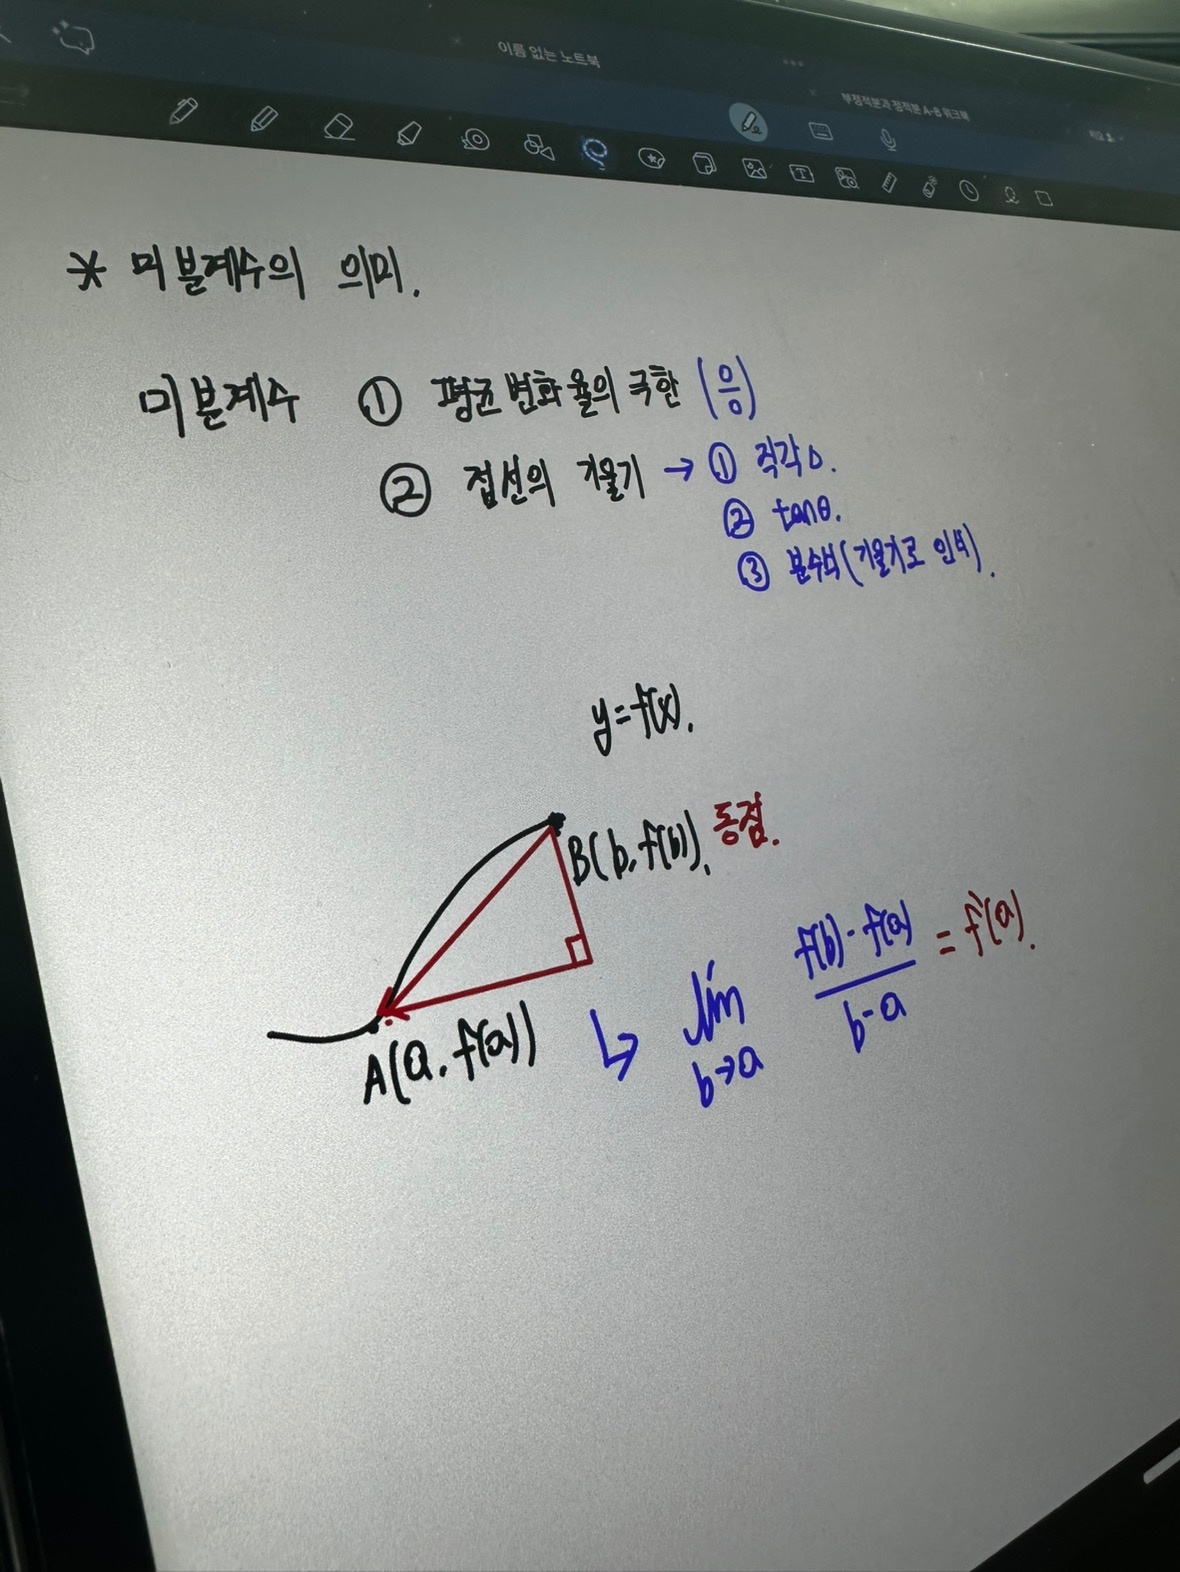 이름 없는 노트북
부정적분과 정적분 A-B 워크북
* 미분계수의 의미.
미분계수 ① 평균변화율의 극한 (0/0)
② 접선의 기울기 → ① 직각△.
② tanθ.
③ 분수식(기울기로 인식).
y=f(x).
B(b, f(b)). 동점.
A(a, f(a))
↳ lim b→a f(b)-f(a) / b-a = f'(a).